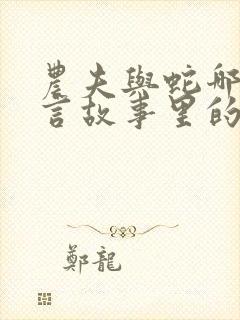 農夫與蛇那
言故事里的
鄭龍